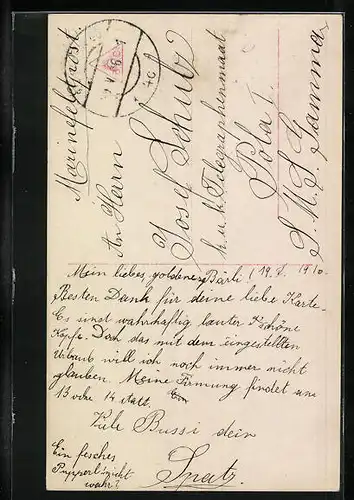 Marinefeldpost.
An Herrn
Josef Schulz
k.u.k. Telegraphenmaat
Pola I.
S.M.S. Gamma
Mein liebes, goldenes Bärli! 19. 1910
Besten Dank für deine liebe Karte.
Es sind wahrhaftig lauter schöne
Köpfe. Doch das mit dem eingestellten
Urlaub will ich noch immer nicht
glauben. Meine Firmung findet am
13 oder 14 statt.
Viele Bussi dein
Spatz.
Ein fesches
Pupperl nicht
wahr!